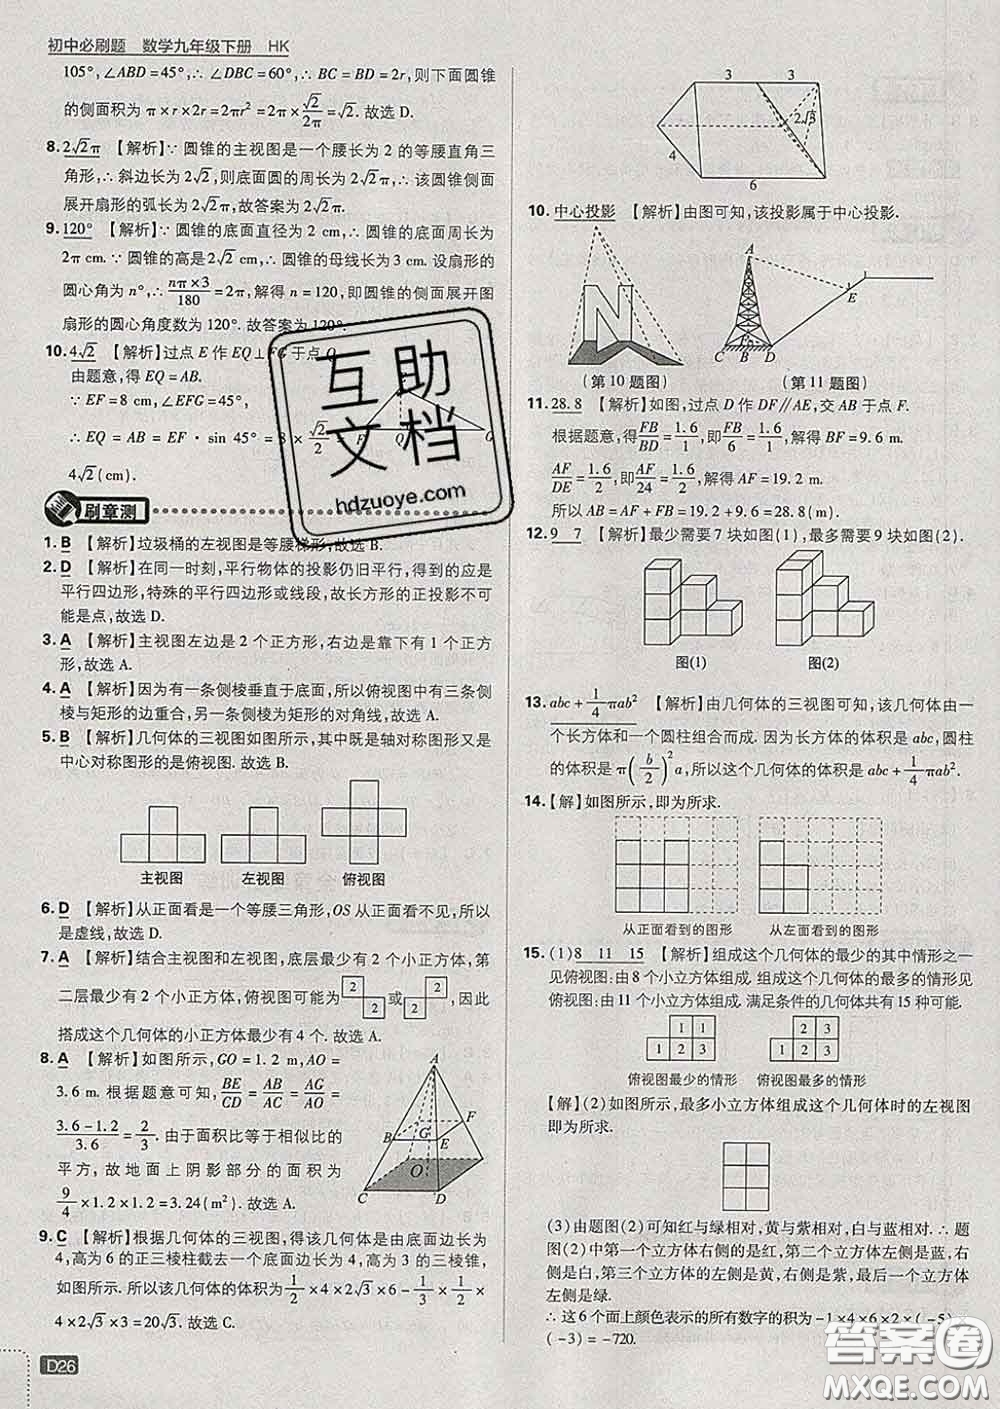 初中必刷题 数学九年级下册 HK
105°,∠ABD=45°,∴∠DBC=60°,∴BC=BD=2r,则下面圆锥
的侧面积为π×r×2r=2πr²=2π×√2/2π=√2.故选D.
8.2√2π 【解析】∵圆锥的主视图是一个腰长为2的等腰直角三
角形,∴斜边长为2√2,则底面圆的周长为2√2π,∴该圆锥侧面
展开扇形的弧长为2√2π,故答案为2√2π.
9.120° 【解析】∵圆锥的底面直径为2 cm,∴圆锥的底面周长为
2π cm.∵圆锥的高是2√2 cm,∴圆锥的母线长为3 cm.设扇形的
圆心角为n°,∴nπ×3/180=2π,解得n=120,即圆锥的侧面展开图
扇形的圆心角度数为120°.故答案为120°.
10.4√2 【解析】过点E作EQ⊥FG于点Q,
由题意,得EQ=AB.
∵EF=8 cm,∠EFG=45°,
∴EQ=AB=EF·sin 45°=8×√2/2=
4√2(cm).
E
F Q G
刷章测
1.B 【解析】垃圾桶的左视图是等腰梯形,故选B.
2.D 【解析】在同一时刻,平行物体的投影仍旧平行,得到的应是
平行四边形,特殊的平行四边形或线段,故长方形的正投影不可
能是点,故选D.
3.A 【解析】主视图左边是2个正方形,右边是靠下有1个正方
形,故选A.
4.A 【解析】因为有一条侧棱垂直于底面,所以俯视图中有三条侧
棱与矩形的边重合,另一条侧棱为矩形的对角线,故选A.
5.B 【解析】几何体的三视图如图所示,其中既是轴对称图形又是
中心对称图形的是俯视图.故选B.
主视图 左视图 俯视图
6.D 【解析】从正面看是一个等腰三角形,OS从正面看不见,所以
是虚线,故选D.
7.A 【解析】结合主视图和左视图,底层最少有2个小正方体,第
二层最少有2个小正方体,俯视图可能为2 2或2 2,因此
搭成这个几何体的小正方体最少有4个.故选A.
8.A 【解析】如图所示,GO=1.2 m,AO=
3.6 m.根据题意可知,BE/CD=AB/AC=AG/AO=
3.6-1.2/3.6=2/3.由于面积比等于相似比的
平方,故地面上阴影部分的面积为
9/4×1.2×1.2=3.24(m²).故选A.
A
F
G
B E
O
C D
9.C 【解析】根据几何体的三视图,得该几何体是由底面边长为
4,高为6的正三棱柱截去一个底面边长为4,高为3的三棱锥,
如图所示.所以该几何体的体积为1/2×4×2√3×4+1/2×
4×2√3×3=20√3.故选C.
D26
3 3
2√3
4
6
10.中心投影 【解析】由图可知,该投影属于中心投影.
A
E
C B D
(第10题图) (第11题图)
11.28.8 【解析】如图,过点D作DF∥AE,交AB于点F.
根据题意,得FB/BD=1.6/1,即FB/6=1.6/1,解得BF=9.6 m.
AF/DE=1.6/2,即AF/24=1.6/2,解得AF=19.2 m.
所以AB=AF+FB=19.2+9.6=28.8(m).
12.9 7 【解析】最少需要7块如图(1),最多需要9块如图(2).
图(1) 图(2)
13.abc+1/4πab² 【解析】由几何体的三视图可知,该几何体由一
个长方体和一个圆柱组合而成.因为长方体的体积是abc,圆柱
的体积是π(b/2)²a,所以这个几何体的体积是abc+1/4πab².
14.【解】如图所示,即为所求.
从正面看到的图形 从左面看到的图形
15.(1)8 11 15 【解析】组成这个几何体的最少的其中情形之一
见俯视图:由8个小立方体组成.组成这个几何体的最多的情形见
俯视图:由11个小立方体组成.满足条件的几何体共有15种可能.
1 1
1 2 3
2 3
1 2 3
俯视图最少的情形 俯视图最多的情形
【解】(2)如图所示,最多小立方体组成这个几何体时的左视图
即为所求.
(3)由题图(2)可知红与绿相对,黄与紫相对,白与蓝相对.∴题
图(2)中第一个立方体右侧的是红,第二个立方体左侧是蓝,右
侧是白,第三个立方体的左侧是黄,右侧是紫,最后一个立方体
左侧是绿.
∴这6个面上颜色表示的所有数字的积为-1×4×6×2×(-5)×
(-3)=-720.
互助
文档
hdzuoye.com
答案圈
MXQE.COM